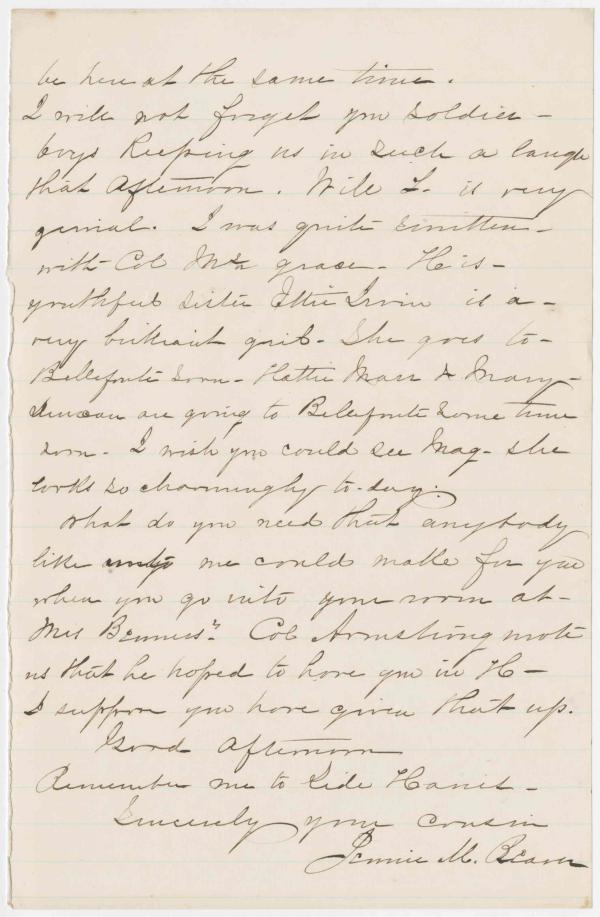 be here at the same time.
I will not forget you soldier-
boys keeping us in such a laugh
that afternoon. Will L. is very
genial. I was quite smitten-
with Col grace- He is-
youthful sister Ettie Irvin is a-
very brilliant girl- She goes to-
Bellefonte soon- Hattie Mann & Mary-
Duncan are going to Bellefonte some time
soon- I wish you could see Mag- she
looks so charmingly to-day.
What do you need that anybody
like unto me could make for you
when you go into your room at-
Mrs Benners". Col Armstrong wrote
us that he hoped to have you in H-
I suppose you have given that up.
Good Afternoon
Remember me to Harris-
Sincerely your cousin
Jennie M. Beaver